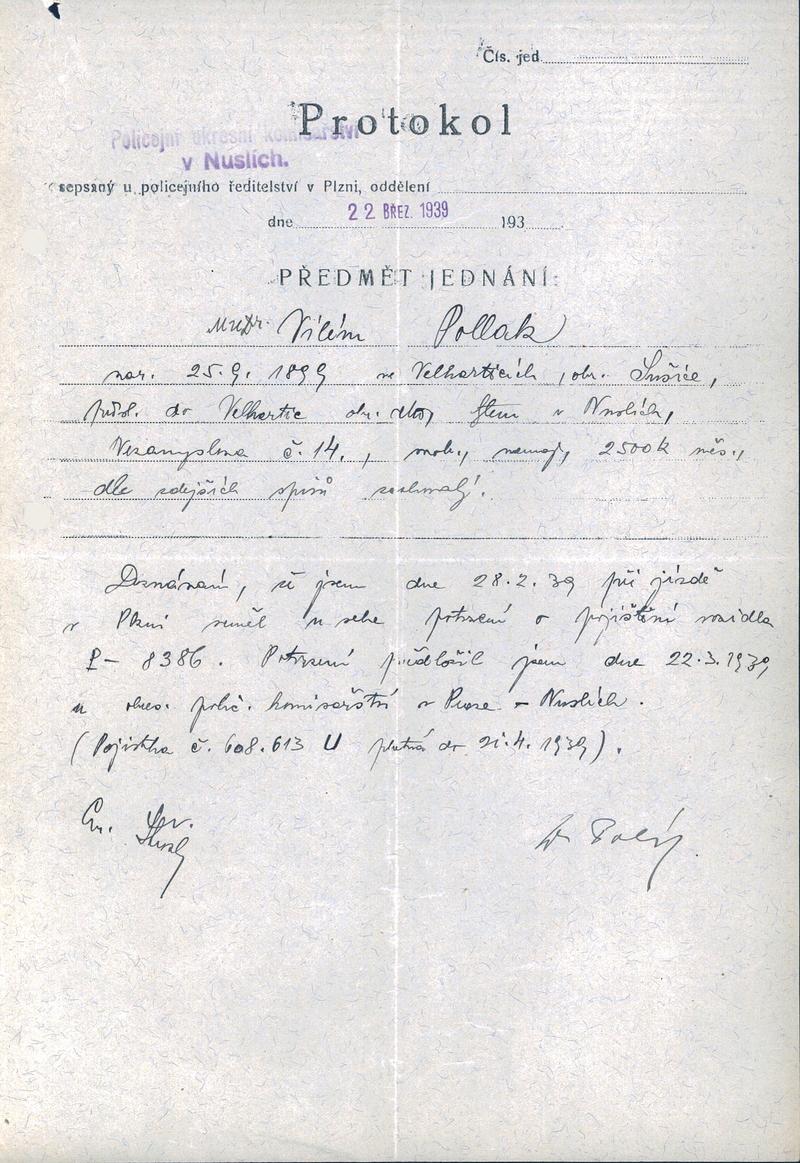 Čís. jed.
Protokol
Policejní okresní komisařství
v Nuslích.
sepsaný u policejního ředitelství v Plzni, oddělení
dne 22 BŘEZ. 1939 193
PŘEDMĚT JEDNÁNÍ:
MUDr. Vilém Pollak
nar. 25.9. 1899 ve Velharticích, okr. Sušice,
přísl. do Velhartic okr. dtto, bytem v Nuslích,
Nezamyslova č. 14., nemaj., 2500K měs.,
dle zdejších spisů zachovalý.
Doznávám, že jsem dne 28.2.39 při jízdě
v Plzni neměl u sebe potvrzení o pojištění vozidla
P - 8386. Potvrzení předložil jsem dne 22.3.1939
u okres. polic. komisařství v Praze - Nuslích.
(Pojistka č. 608.613 U platná do 21.4. 1939).